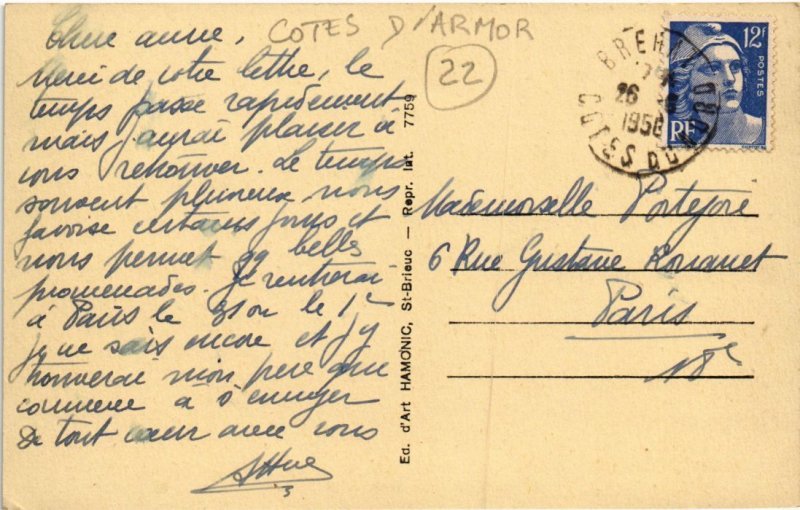 Chère amie,
Merci de votre lettre, le
temps passe rapidement
mais j'aurai plaisir à
vous retrouver. Le temps
souvent pluvieux, nous
favorise certains jours et
nous permet qq belles
promenades. Je rentrerai
à Paris le 31 ou le 1er
je ne sais encore et j'y
trouverai mon père qui
commence à s'ennuyer
De tout cœur avec vous
COTES D'ARMOR
22
BREHA
26
1950
COTES DU NORD
12F
POSTES
RF
Ed. d'Art HAMONIC, St-Brieuc — Repr. Int. 7759
Mademoiselle
6 Rue Gustave Rouanet
Paris
18e